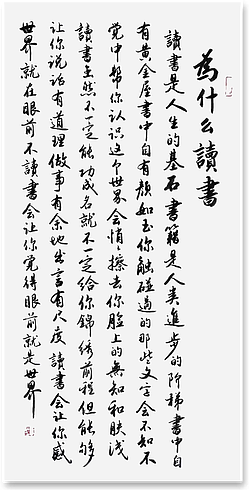 为什么讀書
讀書是人生的基石書籍是人类進步的阶梯書中自
有黄金屋書中自有颜如玉你触碰过的那些文字会不知不
觉中帮你认识这个世界会悄悄擦去你脸上的無知和肤浅
讀書虽然不一定能功成名就不一定给你錦绣前程但能够
让你说话有道理做事有余地出言有尺度讀書会让你感
世界就在眼前不讀書会让你觉得眼前就是世界